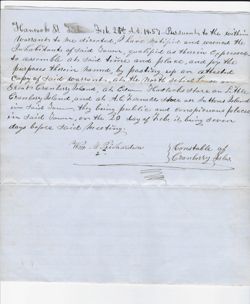 Hancock SS. Feb 28th A.D. 1857. Pursuant to the within
Warrant to me directed, I have notified and warned the
Inhabitants of said Town, qualified as therein expressed
to assemble at said time and place, and for the
purposes therein named, by posting up an attested
Copy of said warrant, at the North school house on
Great Cranberry Island, at store on Little
Cranberry Island, and at store on Suttons Island
in said Town, they being public and conspicuous places
in said Town, on the 20 day of Feb. it being seven
days before said Meeting.
Wm. Richardson
Constable of
Cranberry Isles